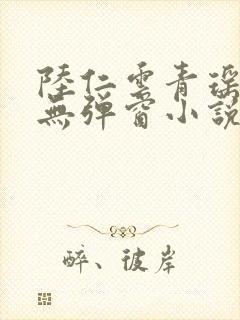 陸仁雲青瑶
無彈窗小說
醉、彼岸